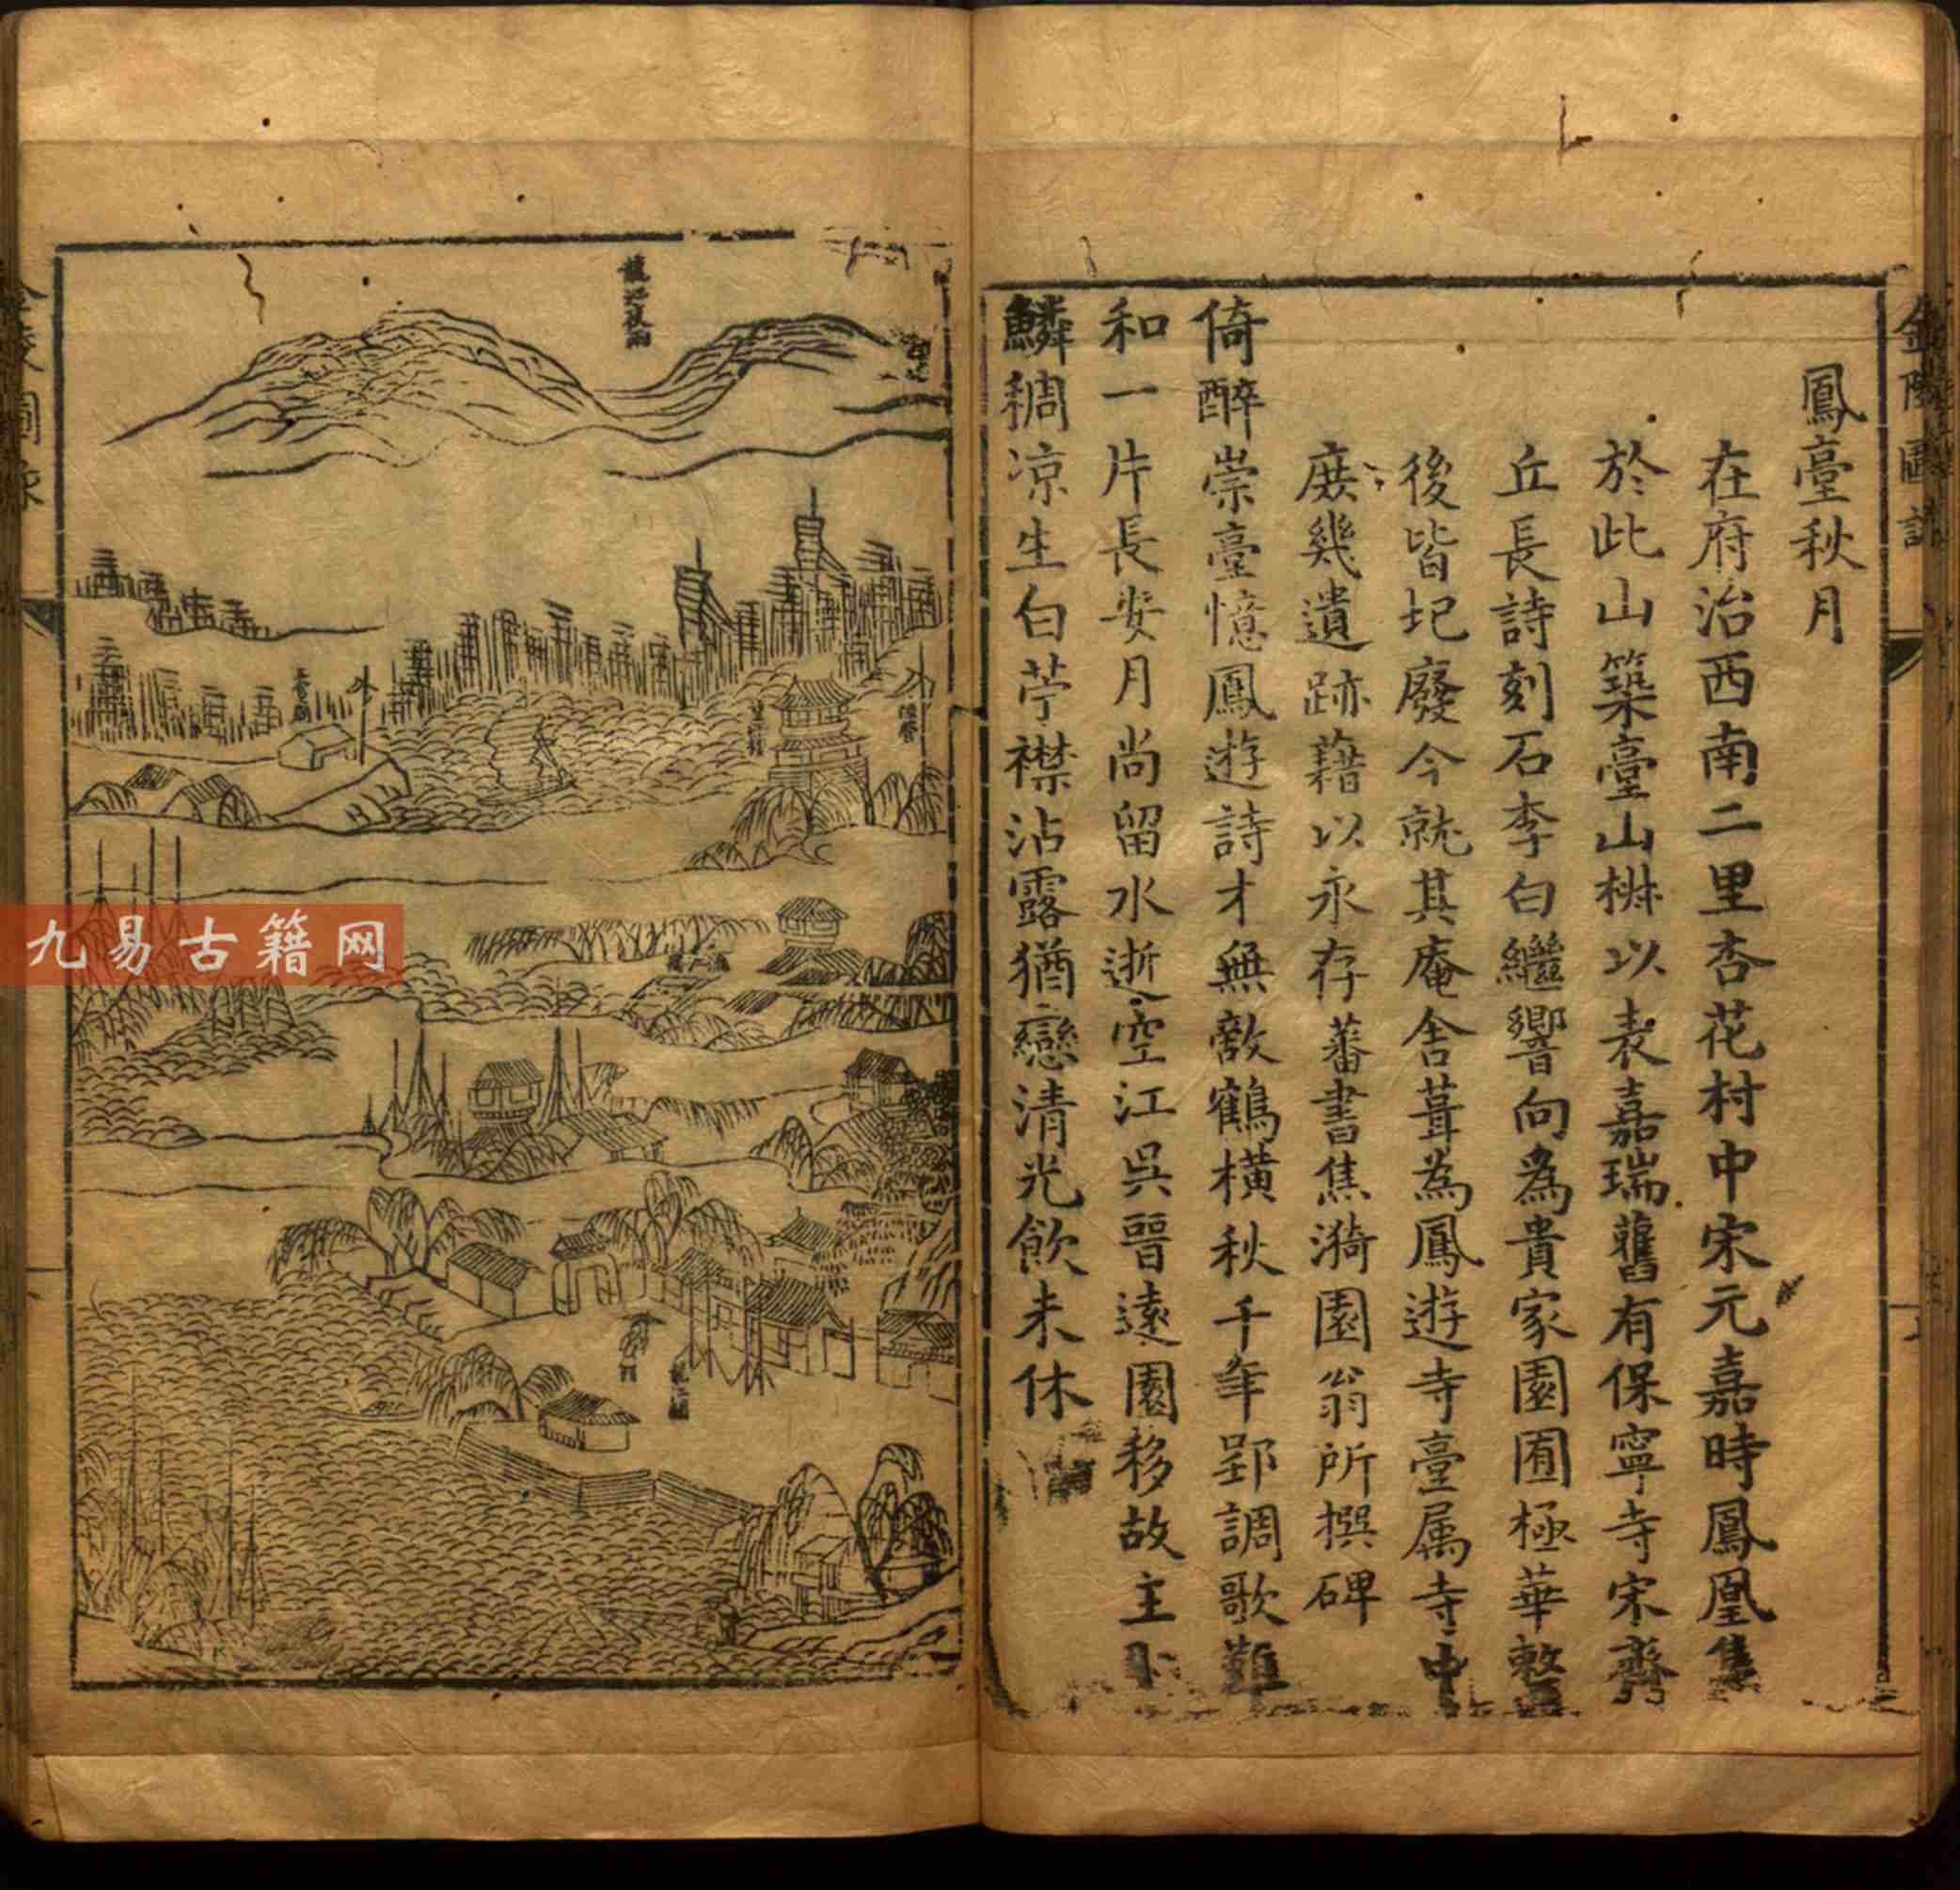 鳳臺秋月
在府治西南二里杏花村中宋元嘉時鳳凰集
於此山築臺山椒以表嘉瑞舊有保寧寺宋齊
丘長詩刻石李白繼響向為貴家園囿極華整
後皆圮廢今就其庵舍葺為鳳遊寺臺属寺中
庻幾遺跡藉以永存蕃書焦漪園翁所撰碑
倚醉崇臺憶鳳遊詩才無敵鶴橫秋千年郢調歌難
和一片長安月尚留水逝空江吳晉遠園移故主
鱗稠凉生白苧襟沾露猶戀清光飲未休
金陵圖詠
龍江夜雨
龍江關
九易古籍网